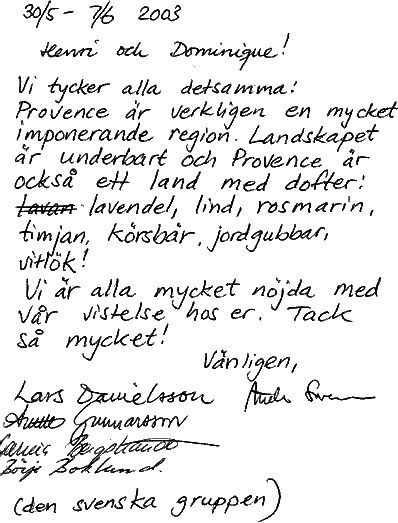 30/5 - 7/6 2003
Henri och Dominique!
Vi tycker alla detsamma:
Provence är verkligen en mycket
imponerande region. Landskapet
är underbart och Provence är
också ett land med dofter:
lavan lavendel, lind, rosmarin,
timjan, körsbär, jordgubbar,
vitlök!
Vi är alla mycket nöjda med
vår vistelse hos er. Tack
så mycket!
Vänligen,
Lars Danielsson
Gunnarsson
Börje Boklund.
(den svenska gruppen)